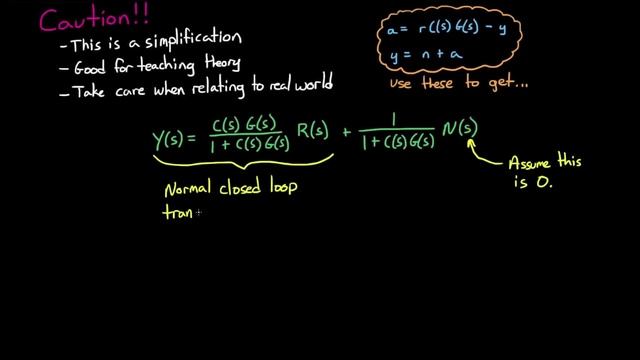 Caution!!
- This is a simplification
- Good for teaching theory
- Take care when relating to real world
a = r C(s) G(s) - y
y = n + a
use these to get...
Y(s) = C(s) G(s) / 1 + C(s) G(s) R(s) + 1 / 1 + C(s) G(s) N(s)
Assume this
is 0.
Normal closed loop
tran